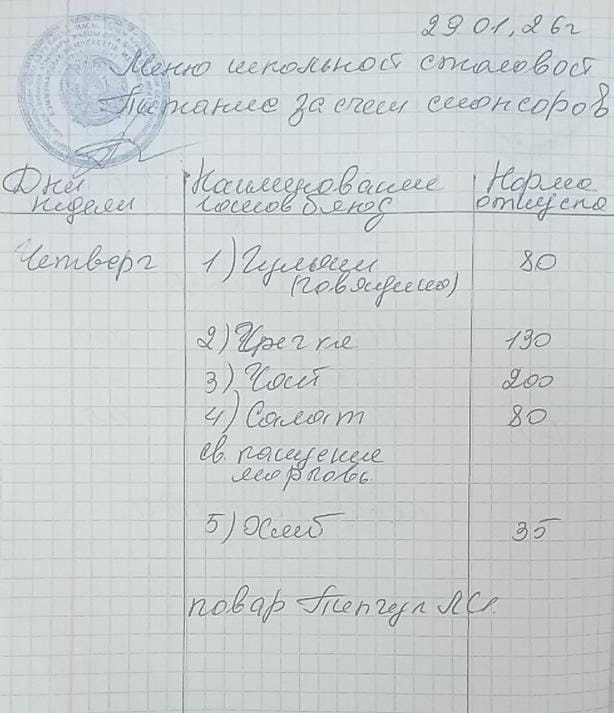 29 01, 26г
Меню школьной столовой
Питание за счет спонсоров
Дни Наименование Норма
недели готов блюд отпуска
Четверг 1) Гуляш 80
(говядина)
2) Гречка 130
3) Чай 200
4) Салат 80
св. капуста
морковь
5) Хлеб 35
повар